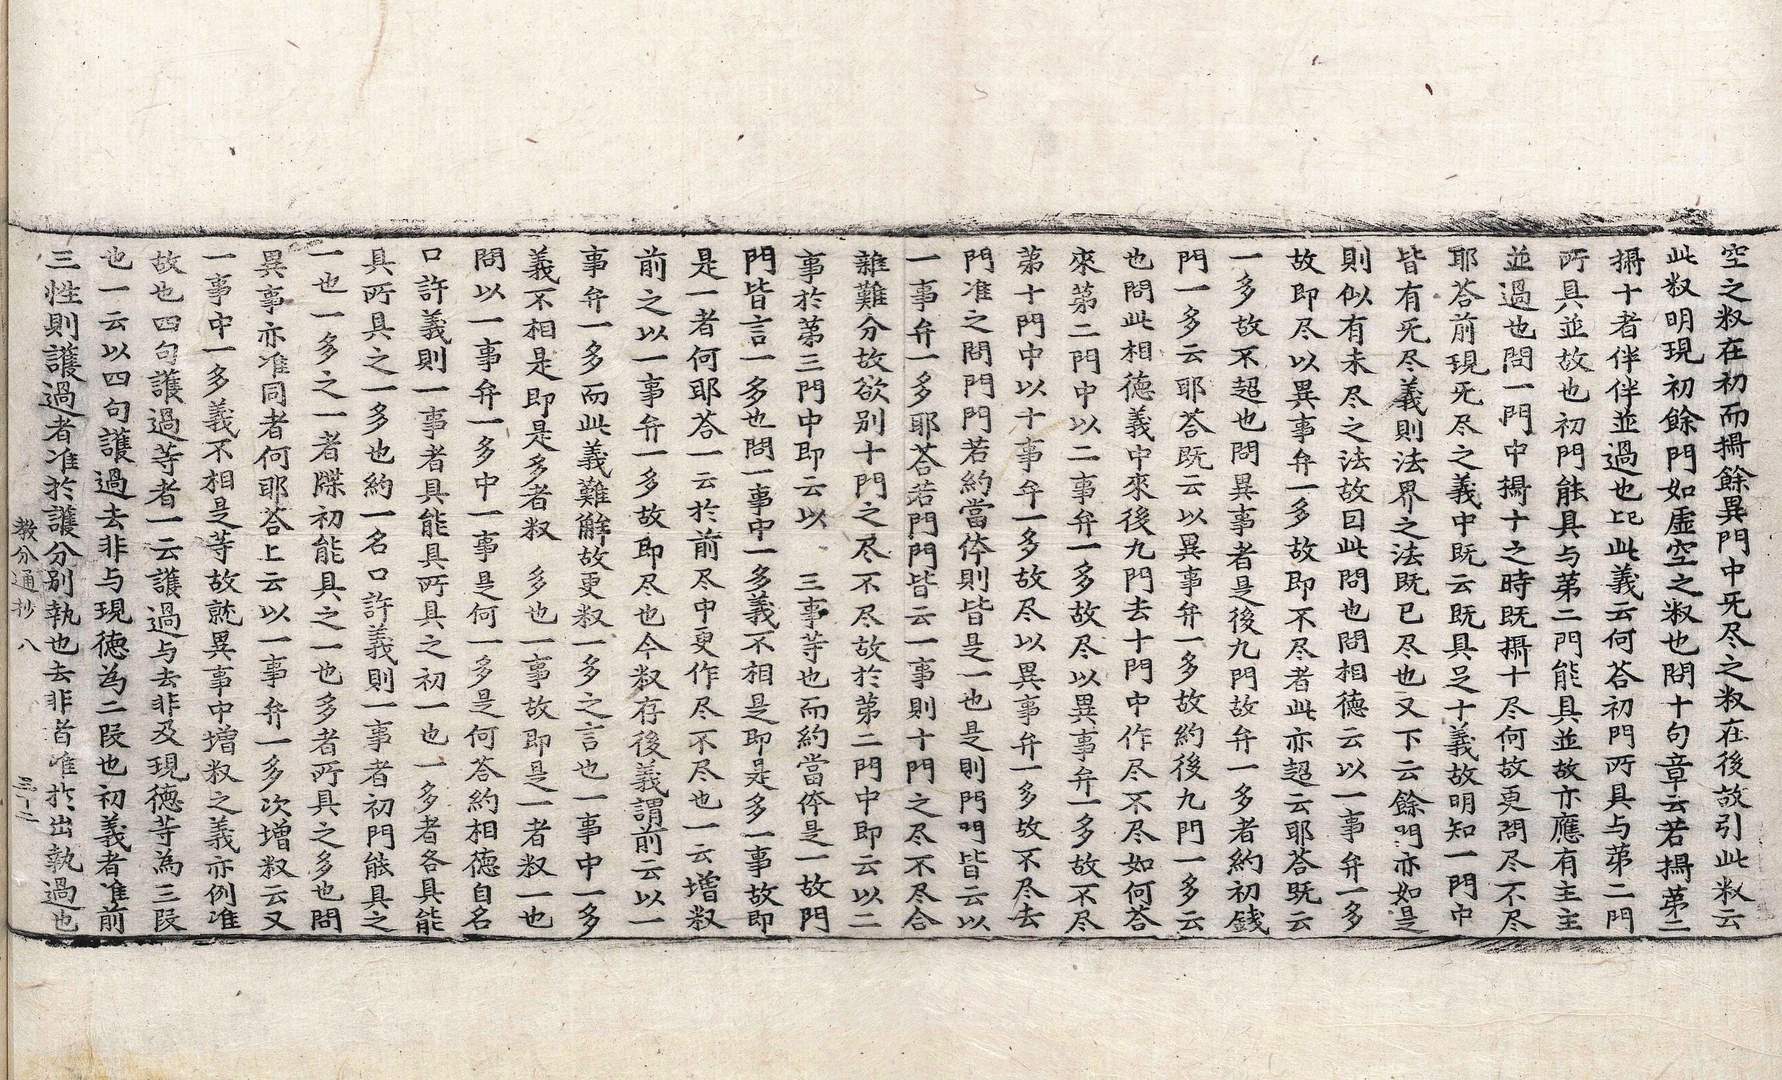 空之釈在初而攝餘異門中旡尽之釈在後故引此釈云
此釈明現初餘門如虛空之釈也問十句章云若攝第二
攝十者伴伴並過也上此義云何答初門所具与第二門
所具並故也初門能具与第二門能具並故亦應有主主
並過也問一門中攝十之時既攝十尽何故更問尽不尽
耶答前現旡尽之義中既云既具足十義故明知一門中
皆有旡尽義則法界之法既已尽也又下云餘門亦如是
則似有未尽之法故因此問也問相德云以一事弁一多
故即尽以異事弁一多故即不尽者此亦超云耶答既云
一多故不超也問異事者是後九門故弁一多者約初錢
門一多云耶答既云以異事弁一多故約後九門一多云
也問此相德義中來後九門去十門中作尽不尽如何答
來第二門中以二事弁一多故尽以異事弁一多故不尽
第十門中以十事弁一多故尽以異事弁一多故不尽去
門准之問門門若約當体則皆是一也是則門門皆云以
一事弁一多耶答若門門皆云一事則十門之尽不尽合
雜難分故欲别十門之尽不尽故於第二門中即云以二
事於第三門中即云以三事等也而約當体是一故門
門皆言一多也問一事中一多義不相是即是多一事故即
是一者何耶答一云於前尽中更作尽不尽也一云增釈
前之以一事弁一多故即尽也今釈存後義謂前云以一
事弁一多而此義難解故更釈一多之言也一事中一多
義不相是即是多者釈多也一事故即是一者釈一也
問以一事弁一多中一事是何一多是何答約相德自名
口許義則一事者具能具所具之初一也一多者各具能
具所具之一多也約一名口許義則一事者初門能具之
一也一多之一者牒初能具之一也多者所具之多也問
異事亦准同者何耶答上云以一事弁一多次增釈云又
一事中一多義不相是等故就異事中增釈之義亦例准
故也四句護過等者一云護過与去非及現德等為三段
也一云以四句護過去非与現德為二段也初義者准前
三性則護過者准於護分别執也去非者准於出執過也
教分通抄 八 三十二